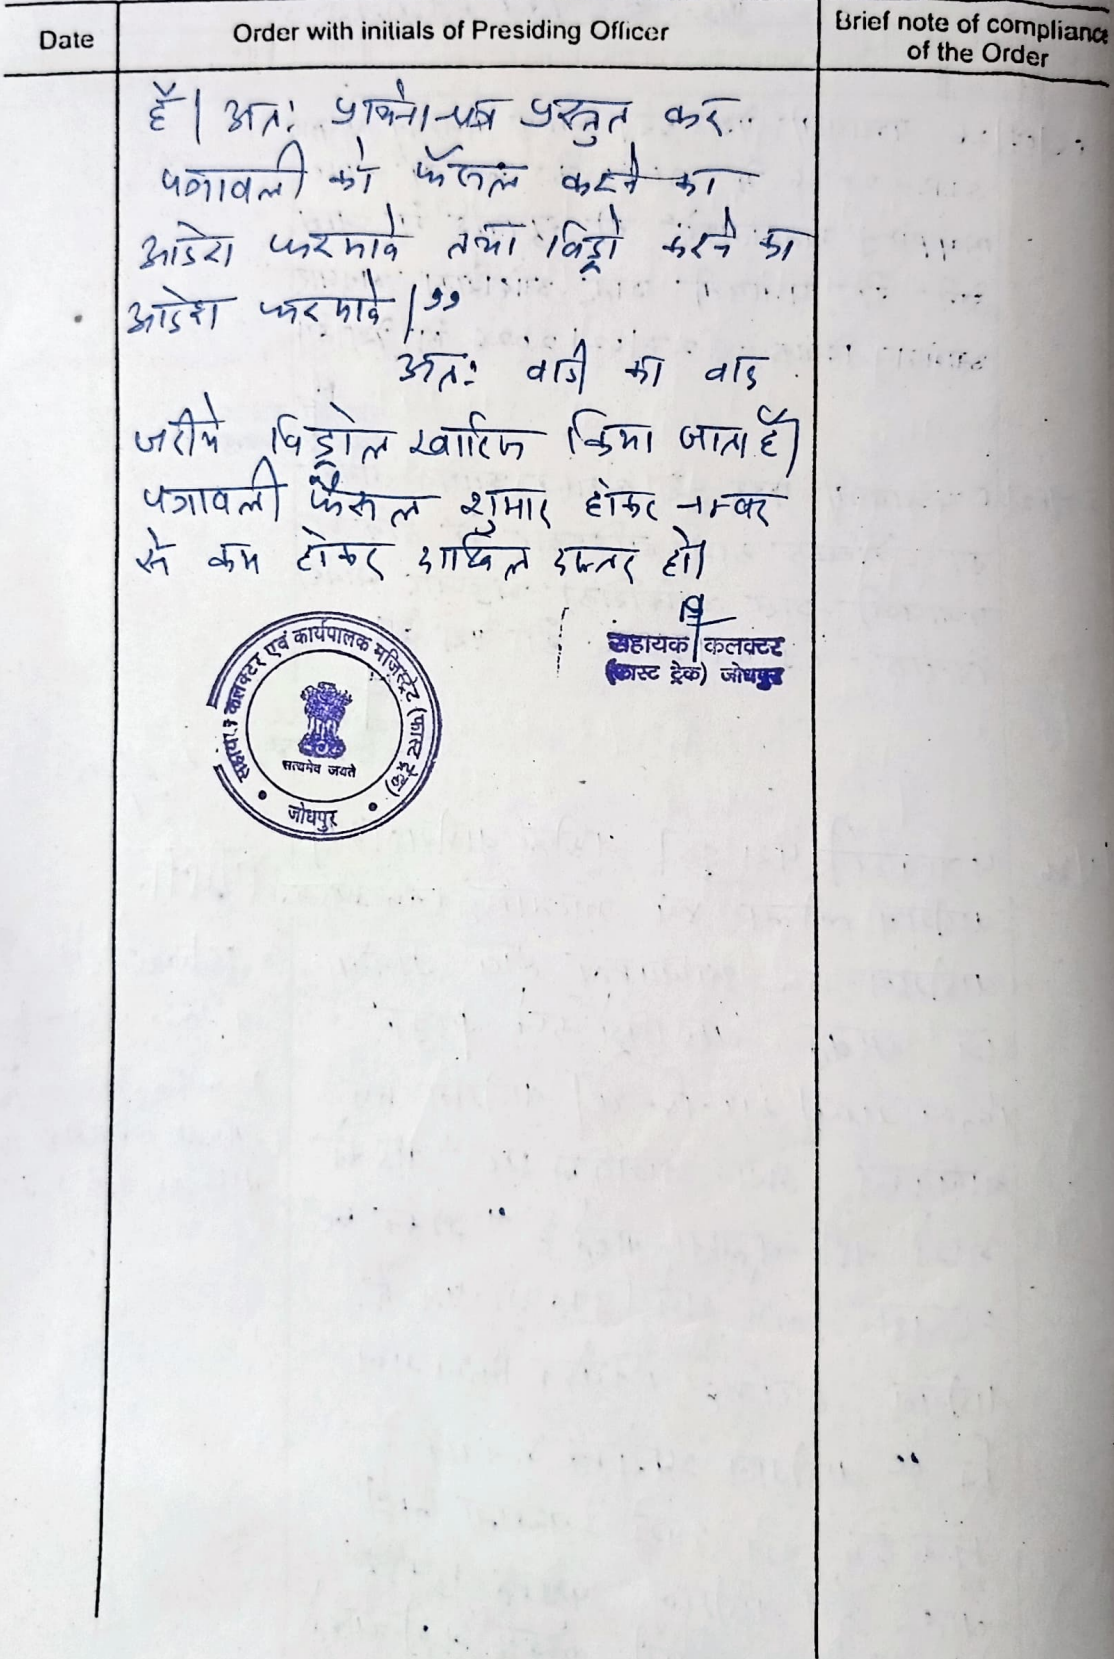 Date
Order with initials of Presiding Officer
Brief note of compliance
of the Order
है। अतः प्रार्थना-पत्र प्रस्तुत कर
पत्रावली को फैसल करने का
आदेश फरमावे तथा विड्रो करने का
आदेश फरमावे।"
अतः वादी का वाद
जरीये विड्रोल खारिज किया जाता है।
पत्रावली फैसल शुमार होकर नम्बर
से कम होकर दाखिल दफ्तर हो।
सहायक कलक्टर
(फास्ट ट्रेक) जोधपुर
सहायक कलक्टर एवं कार्यपालक मजिस्ट्रेट (फास्ट ट्रेक)
सत्यमेव जयते
जोधपुर